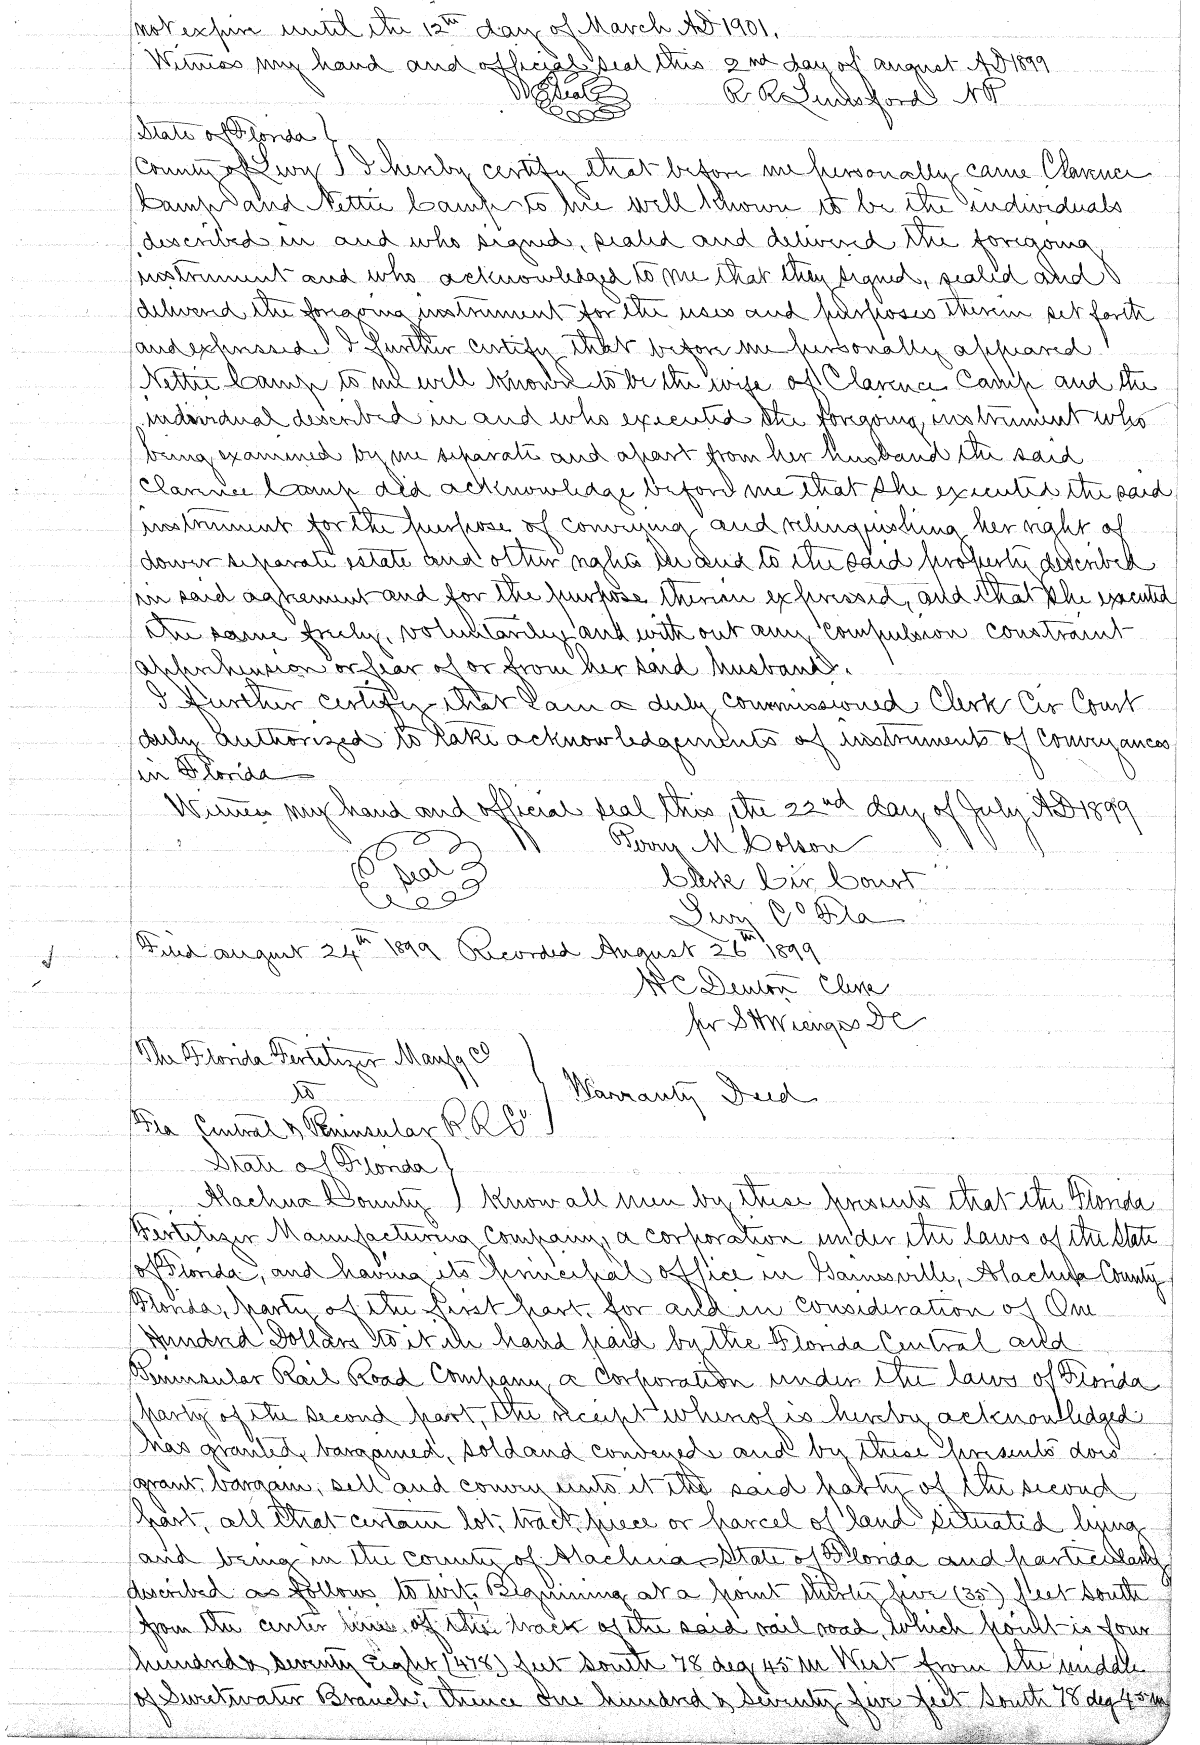 not expire until the 12th day of March AD 1901.
Witness my hand and official seal this 2nd day of august AD 1899
Seal R R NP
State of Florida }
County of Levy } I hereby certify that before me personally came Clarence
Camp and Nettie Camp to me well known to be the individuals
described in and who signed, sealed and delivered the foregoing
instrument and who acknowledged to me that they signed, sealed and
delivered the foregoing instrument for the uses and purposes therein set forth
and expressed. I further certify that before me personally appeared
Nettie Camp to me well known to be the wife of Clarence Camp and the
individual described in and who executed the foregoing instrument who
being examined by me separate and apart from her husband the said
Clarence Camp did acknowledge before me that she executed the said
instrument for the purpose of conveying and relinquishing her right of
dower separate estate and other rights in and to the said property described
in said agreement and for the purpose therein expressed, and that she executed
the same freely, voluntarily and with out any compulsion constraint
apprehension or fear of or from her said husband.
I further certify that I am a duly commissioned Clerk Cir Court
duly authorized to take acknowledgements of instruments of conveyances
in Florida
Witness my hand and official seal this, the 22nd day of July AD 1899
Perry M Colson
Seal Clerk Cir Court
Levy Co Fla
Filed august 24th 1899 Recorded August 26th 1899
H C Denton Clerk
pr S H Wienges DC
The Florida Fertilizer Manfg Co
to } Warranty Deed
Fla Central & Peninsular R. R. Co.
State of Florida }
Alachua County } Know all men by these presents that the Florida
Fertilizer Manufacturing Company, a corporation under the laws of the State
of Florida, and having its principal office in Gainesville, Alachua County
Florida, party of the first part, for and in consideration of One
Hundred Dollars to it in hand paid by the Florida Central and
Peninsular Rail Road Company a corporation under the laws of Florida
party of the second part, the receipt whereof is hereby acknowledged
has granted, bargained, sold and conveyed and by these presents does
grant, bargain, sell and convey unto it the said party of the second
part, all that certain lot, tract, piece or parcel of land situated lying
and being in the county of Alachua State of Florida and particularly
described as follows, to wit, Beginning at a point thirty five (35) feet South
from the center line of the track of the said rail road, which point is four
hundred & seventy eight (478) feet South 78 deg 45 m West from the middle
of Sweetwater Branch; thence one hundred & seventy five feet South 78 deg 45 m